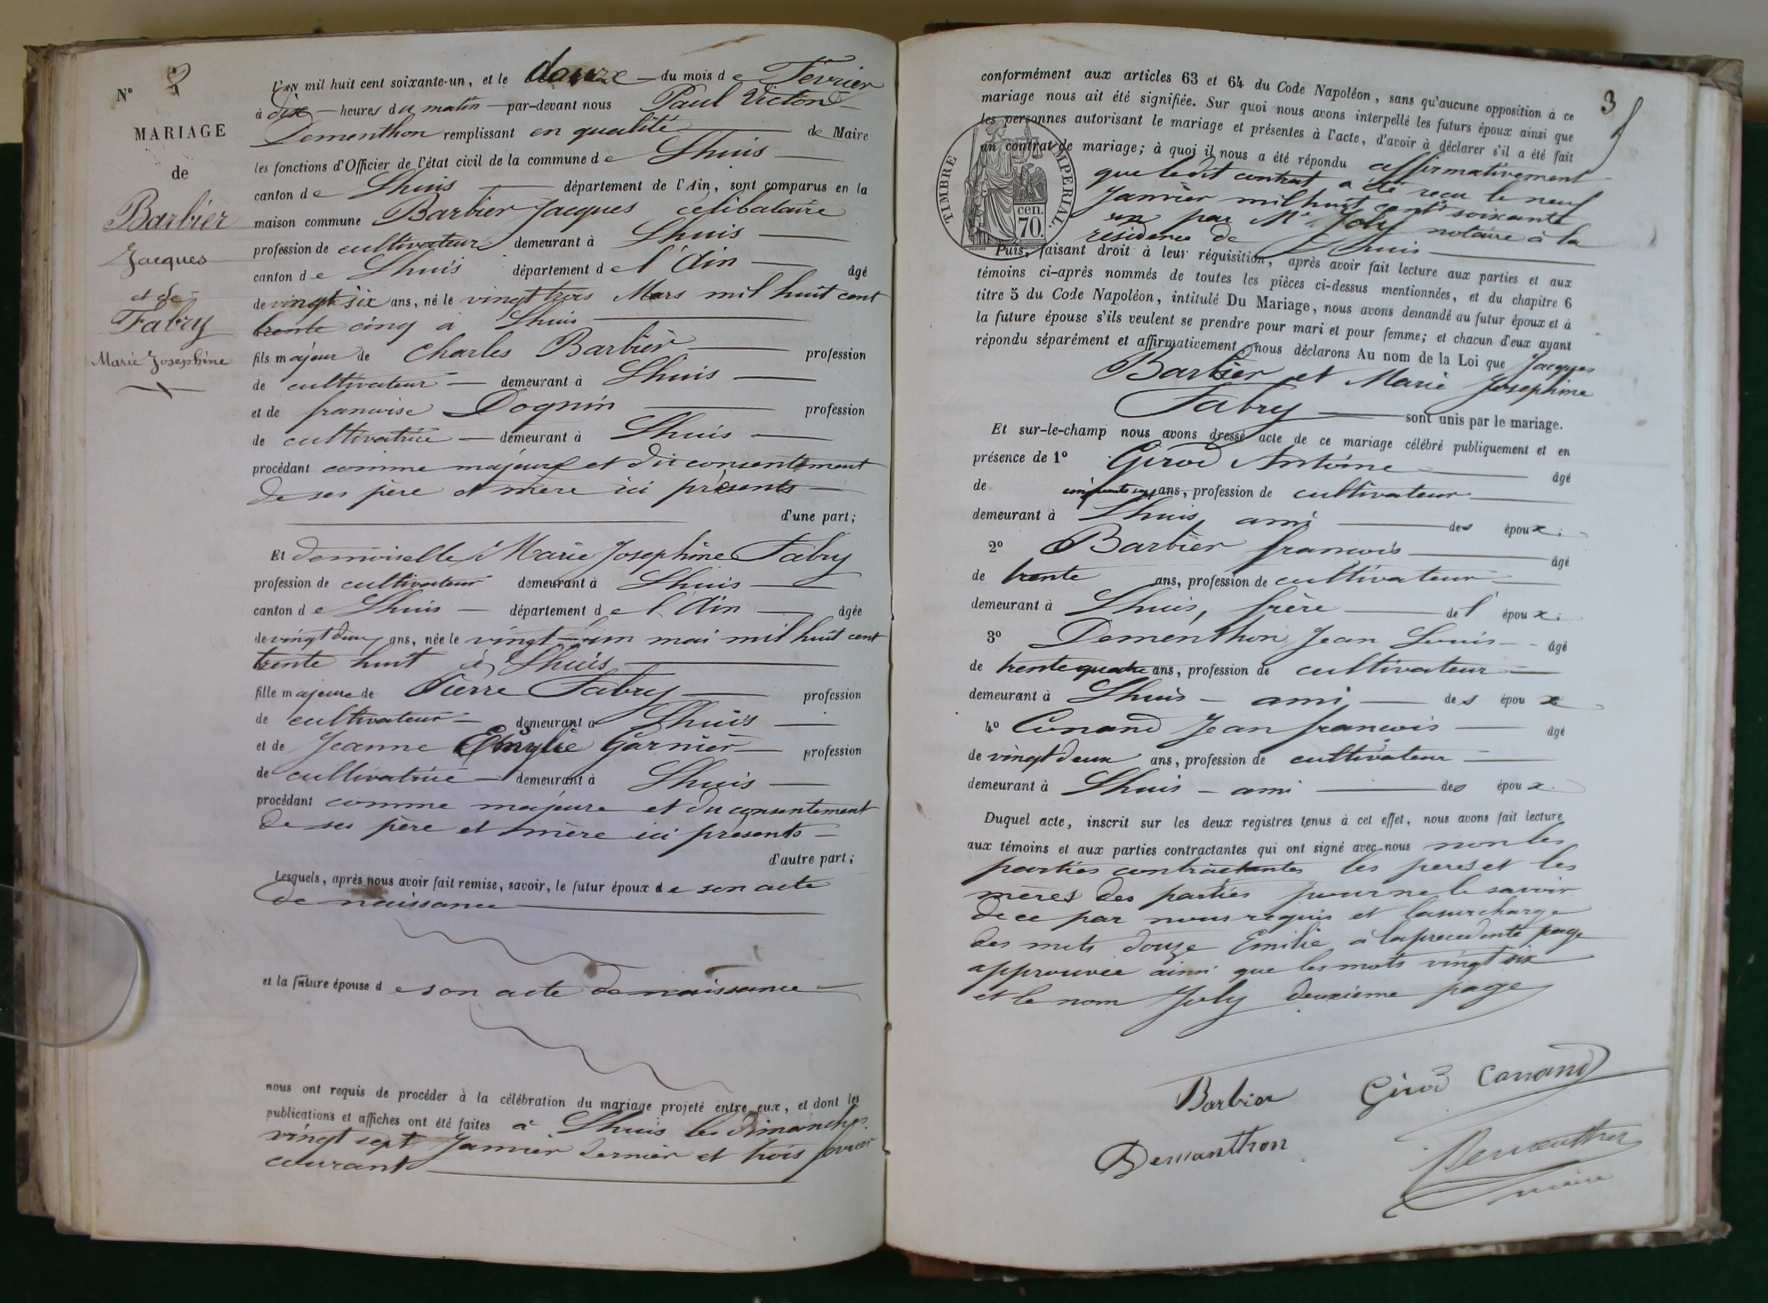 N° 2
MARIAGE
de
Barbier
Jacques
et de
Fabry
Marie Josephine
L'an mil huit cent soixante-un, et le douze du mois de Février
à dix heures du matin par-devant nous Paul Victor
Dementhon remplissant en qualité de Maire
les fonctions d'Officier de l'état civil de la commune de Lhuis
canton de Lhuis département de l'Ain, sont comparus en la
maison commune Barbier Jacques célibataire
profession de cultivateur demeurant à Lhuis
canton de Lhuis département de l'Ain âgé
de vingt six ans, né le vingt trois Mars mil huit cent
trente cinq à Lhuis
fils majeur de Charles Barbier profession
de cultivateur demeurant à Lhuis
et de francoise Dognin profession
de cultivatrice demeurant à Lhuis
procédant comme majeur et du consentement
de ses père et mère ici présents
d'une part;
Et demoiselle Marie Josephine Fabry
profession de cultivateur demeurant à Lhuis
canton de Lhuis département de l'Ain âgée
de vingt deux ans, née le vingt-un mai mil huit cent
trente huit à Lhuis
fille majeure de Pierre Fabry profession
de cultivateur demeurant à Lhuis
et de Jeanne Emylie Garnier profession
de cultivatrice demeurant à Lhuis
procédant comme majeure et du consentement
de ses père et mère ici présents
d'autre part;
Lesquels, après nous avoir fait remise, savoir, le futur époux de son acte
de naissance
et la future épouse de son acte de naissance
nous ont requis de procéder à la célébration du mariage projeté entre eux, et dont les
publications et affiches ont été faites à Lhuis les dimanches
vingt sept Janvier dernier et trois fevrier
courant
3
conformément aux articles 63 et 64 du Code Napoléon, sans qu'aucune opposition à ce
mariage nous ait été signifiée. Sur quoi nous avons interpellé les futurs époux ainsi que
les personnes autorisant le mariage et présentes à l'acte, d'avoir à déclarer s'il a été fait
un contrat de mariage; à quoi il nous a été répondu affirmativement
que ledit contrat a été reçu le neuf
Janvier mil huit cent soixante
un par Me Joly notaire à la
résidence de Lhuis
TIMBRE IMPERIAL.
70 cen.
Puis, faisant droit à leur réquisition, après avoir fait lecture aux parties et aux
témoins ci-après nommés de toutes les pièces ci-dessus mentionnées, et du chapitre 6
titre 5 du Code Napoléon, intitulé Du Mariage, nous avons demandé au futur époux et à
la future épouse s'ils veulent se prendre pour mari et pour femme; et chacun d'eux ayant
répondu séparément et affirmativement, nous déclarons Au nom de la Loi que Jacques
Barbier et Marie Josephine
Fabry sont unis par le mariage.
Et sur-le-champ nous avons dressé acte de ce mariage célébré publiquement et en
présence de 1° Girod Antoine âgé
de ans, profession de cultivateur
demeurant à Lhuis, ami des époux.
2° Barbier francois âgé
de trente ans, profession de cultivateur
demeurant à Lhuis, frère de l'époux.
3° Dementhon Jean Louis âgé
de trente quatre ans, profession de cultivateur
demeurant à Lhuis ami des époux
4° Conand Jean francois âgé
de vingt deux ans, profession de cultivateur
demeurant à Lhuis ami des époux.
Duquel acte, inscrit sur les deux registres tenus à cet effet, nous avons fait lecture
aux témoins et aux parties contractantes qui ont signé avec nous non les
parties contractantes les peres et les
mères des parties pour ne le savoir
de ce par nous requis et la surcharge
des mots douze Emilie, à la precedente page
approuvée ainsi que les mots vingt six
et le nom Joly deuxième page
Barbier Girod Conand
Demanthon Dementhon
maire